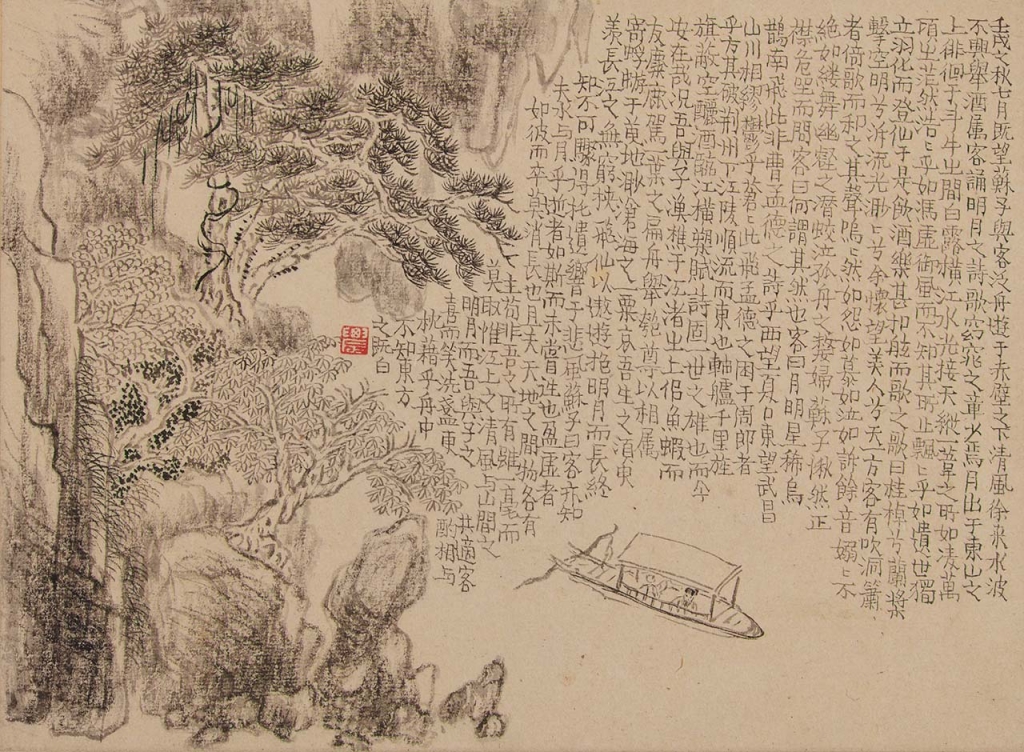 壬戌之秋七月既望蘇子與客泛舟遊于赤壁之下清風徐來水波
不興舉酒属客誦明月之詩歌窈窕之章少焉月出于東山之
上徘徊于斗牛之間白露橫江水光接天縱一葦之所如凌萬
頃之茫然浩〻乎如馮虛御風而不知其所止飄〻乎如遺世獨
立羽化而登仙于是飲酒樂甚扣舷而歌之歌曰桂棹兮蘭槳
擊空明兮泝流光渺〻兮余懷望美人兮天一方客有吹洞簫
者倚歌而和之其聲嗚〻然如怨如慕如泣如訴餘音嫋〻不
絶如縷舞幽壑之潛蛟泣孤舟之嫠婦蘇子愀然正
襟危坐而問客曰何謂其然也客曰月明星稀烏
鵲南飛此非曹孟德之詩乎西望夏口東望武昌
山川相繆鬱乎蒼〻此非孟德之困于周郎者
乎方其破荊州下江陵順流而東也舳艫千里旌
旗蔽空釃酒臨江橫槊賦詩固一世之雄也而今
安在哉況吾與子漁樵于江渚之上侶魚蝦而
友麋鹿駕一葉之扁舟舉匏尊以相属
寄蜉蝣于天地渺滄海之一粟哀吾生之須臾
羨長江之無窮挾飛仙以遨遊抱明月而長終
知不可驟得托遺響于悲風蘇子曰客亦知
夫水与月乎逝者如斯而未嘗往也盈虛者
如彼而卒莫消長也且夫天地之間物各有
主苟非吾之所有雖一毫而
莫取惟江上之清風与山間之
明月而吾與子之共適客
喜而笑洗盞更酌相与
枕藉乎舟中
不知東方
之既白